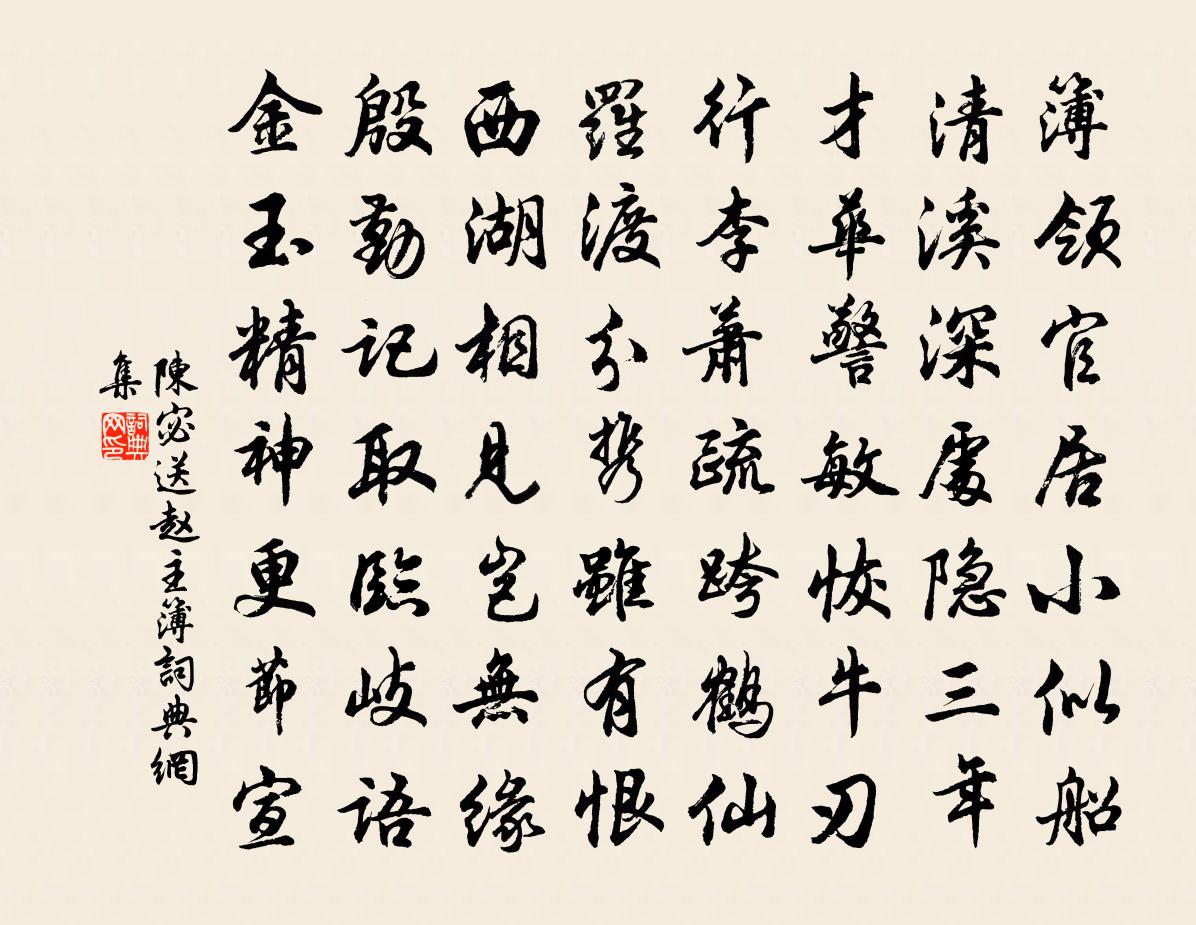 簿領官居小似船
清溪深處隐三年
才華警敏恢牛刃
行李蕭疏跨鶴仙
羅渡分携雖有恨
西湖相見豈無緣
殷勤記取臨岐語
金玉精神更節宣
陳宓送赵主簿詞典網
集
詞典網印